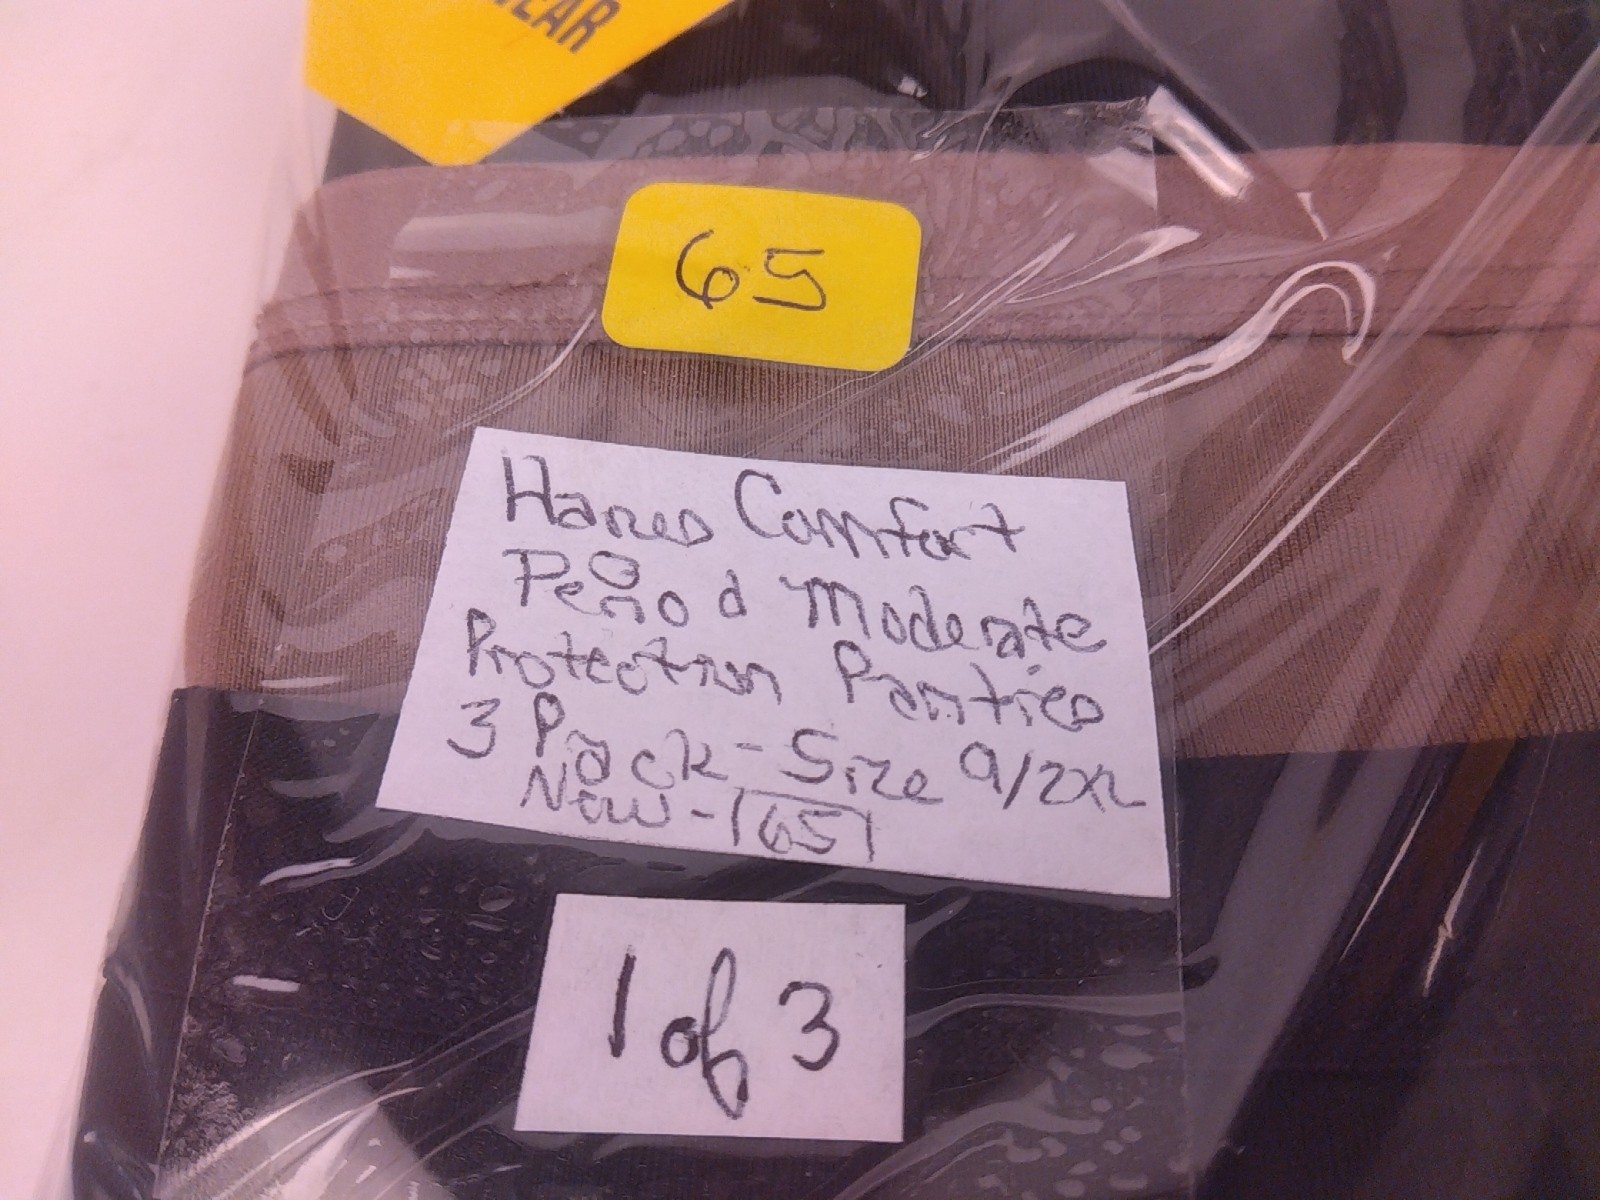 WEAR
65
Hanes Comfort
Period Moderate
Protection Panties
3 Pack - Size 9/2XL
New - 65
1 of 3